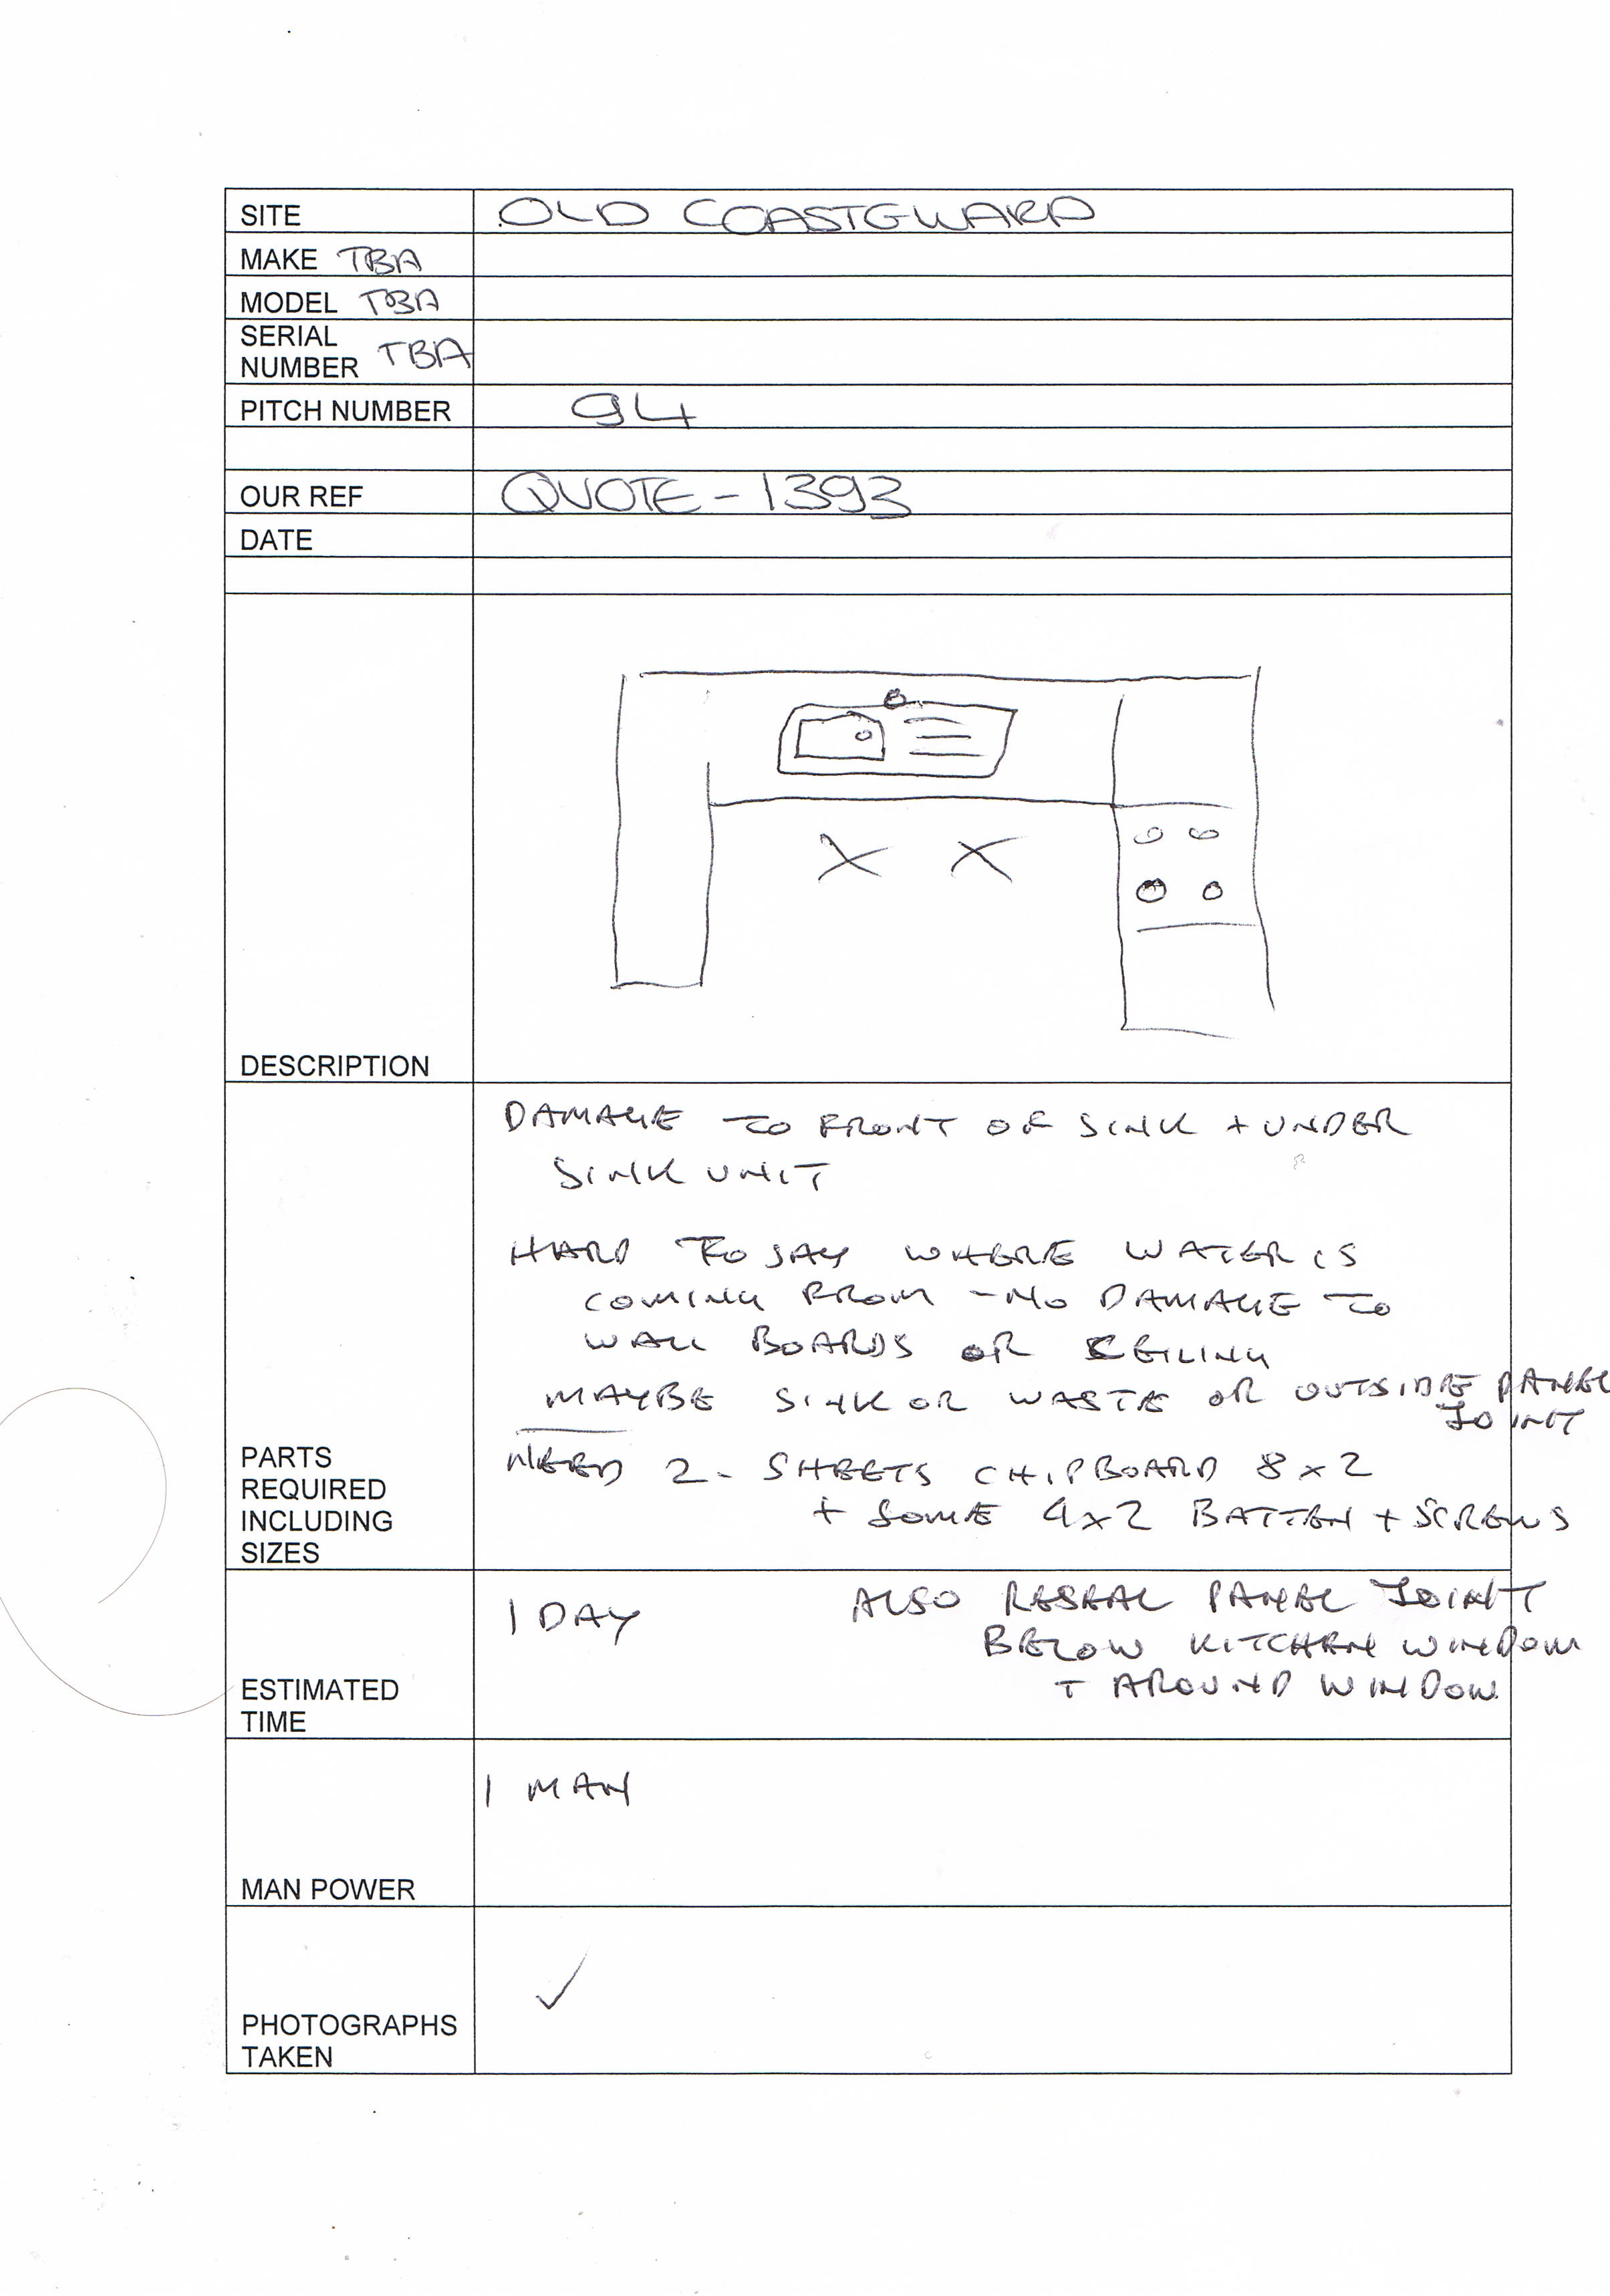 SITE OLD COASTGUARD
MAKE TBA
MODEL TBA
SERIAL
NUMBER TBA
PITCH NUMBER 94
OUR REF QUOTE - 1393
DATE
DESCRIPTION
DAMAGE TO FRONT OF SINK + UNDER
SINK UNIT
HARD TO SAY WHERE WATER IS
COMING FROM - NO DAMAGE TO
WALL BOARDS OR CEILING
MAYBE SINK OR WASTE OR OUTSIDE PANEL
JOINT
NEED 2 - SHEETS CHIPBOARD 8x2
+ SOME 4x2 BATTEN + SCREWS
PARTS
REQUIRED
INCLUDING
SIZES
1 DAY ALSO RESEAL PANEL JOINT
BELOW KITCHEN WINDOW
+ AROUND WINDOW
ESTIMATED
TIME
1 MAN
MAN POWER
PHOTOGRAPHS
TAKEN
✓